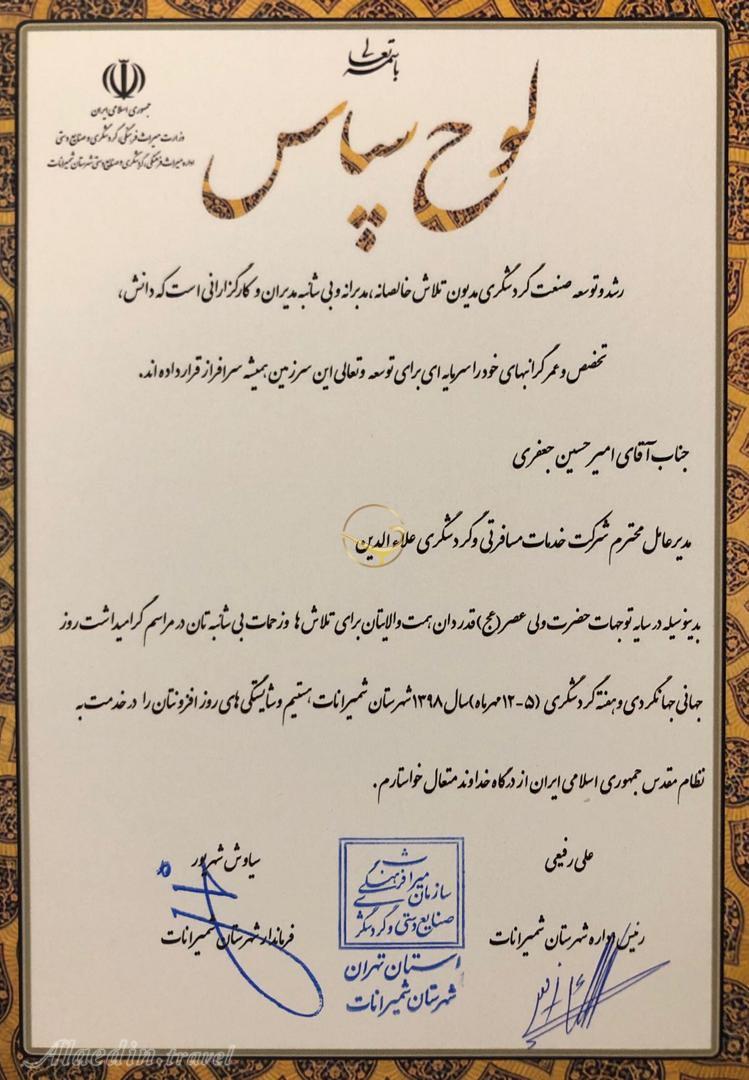 باسمه تعالی
جمهوری اسلامی ایران
وزارت میراث فرهنگی، گردشگری و صنایع دستی
اداره میراث فرهنگی، گردشگری و صنایع دستی شهرستان شمیرانات
لوح سپاس
رشد و توسعه صنعت گردشگری مدیون تلاش خالصانه، مدبرانه و بی شائبه مدیران و کارگزارانی است که دانش،
تخصص و عمر گرانبهای خود را سرمایه ای برای توسعه وتعالی این سرزمین همیشه سرافراز قرار داده اند.
جناب آقای امیرحسین جعفری
مدیرعامل محترم شرکت خدمات مسافرتی وگردشگری علاءالدین
بدینوسیله در سایه توجهات حضرت ولی عصر(عج) قدردان همت والایتان برای تلاش ها وزحمات بی شائبه تان در مراسم گرامیداشت روز
جهانی جهانگردی و هفته گردشگری (۵-۱۲ مهرماه)سال ۱۳۹۸ شهرستان شمیرانات هستیم و شایستگی های روز افزونتان را در خدمت به
نظام مقدس جمهوری اسلامی ایران از درگاه خداوند متعال خواستارم.
علی رفیعی
رئیس اداره شهرستان شمیرانات
سازمان میراث فرهنگی
صنایع دستی و گردشگری
استان تهران
شهرستان شمیرانات
سیاوش شهریور
فرماندار شهرستان شمیرانات
Alaedin.travel